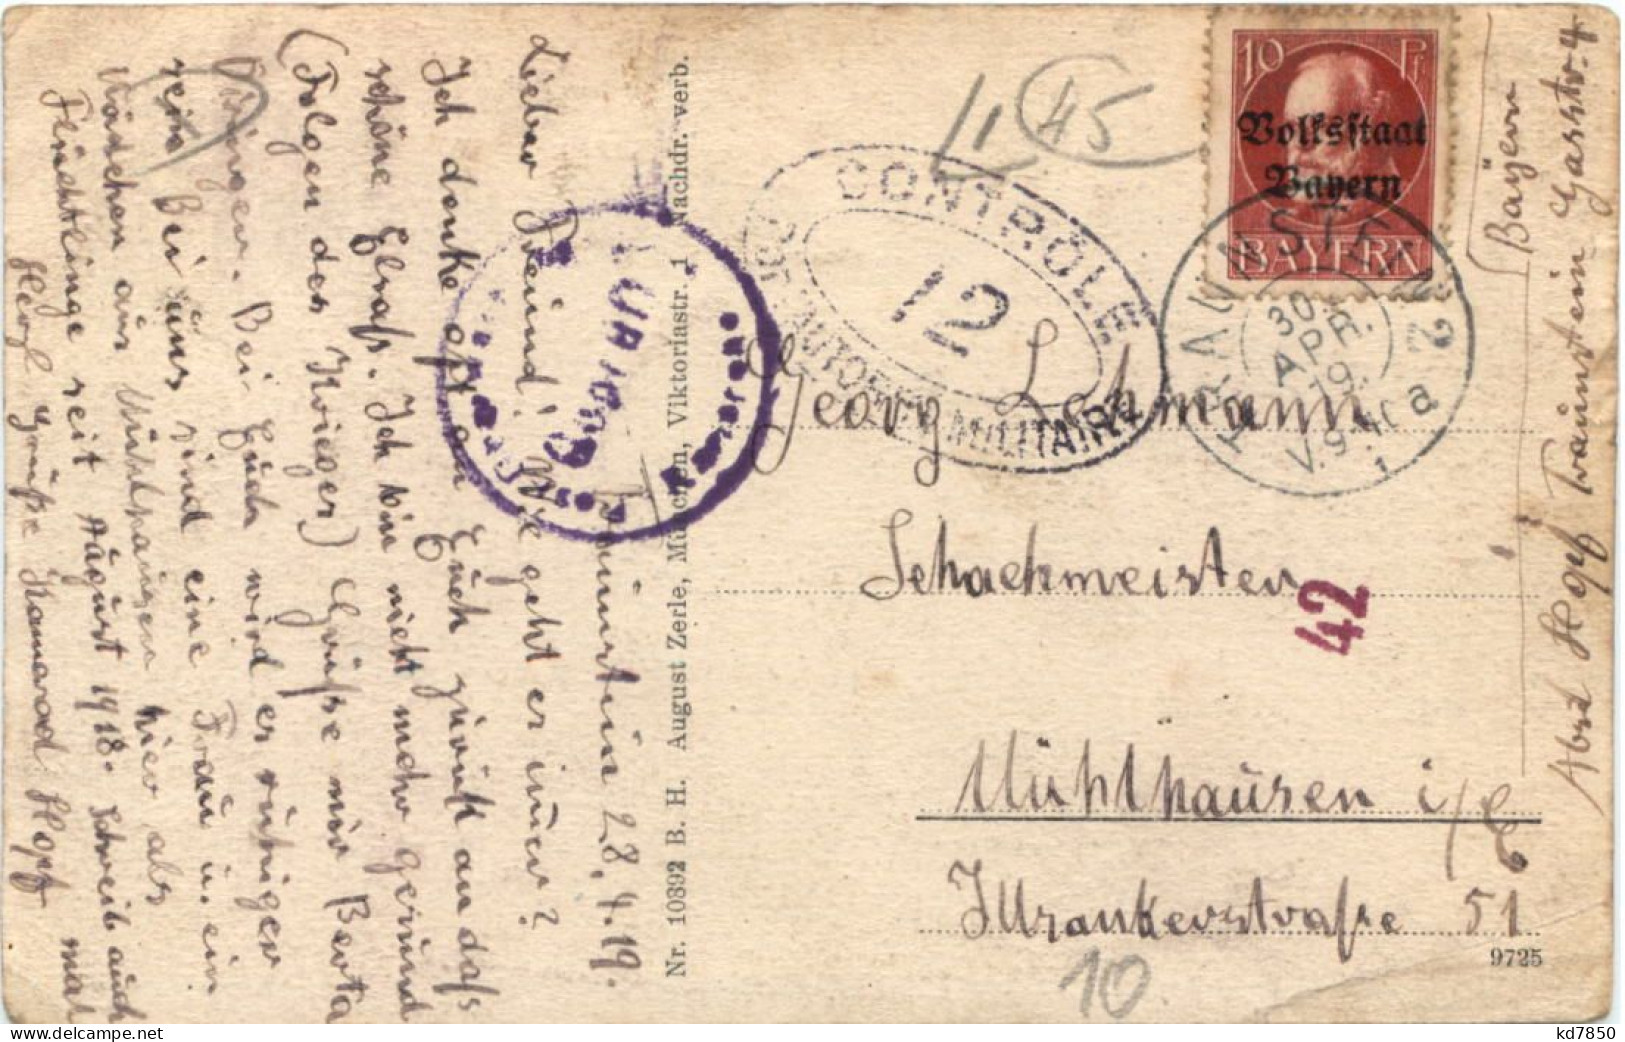 Traunstein 28.4.19.
Lieber Freund! Wie geht es immer?
Ich denke oft an Euch zurück an das
schöne Elsaß. Ich bin nicht mehr gesund
(Folgen des Krieges) Grüße mir Berta
Bei Euch wird es ruhiger
sein. Bei uns sind eine Frau u. ein
Mädchen aus Mühlhausen hier als
Flüchtlinge seit August 1918. Schreib auch mal
Herzl Grüße Kamerad Hopf
Nr. 10892 B. H. August Zerle, München, Viktoriastr. 1 Nachdr. verb.
11 45
CONTRÔLE
12
PAR AUTORITÉ MILITAIRE
10 Pf
Volksstaat
Bayern
BAYERN
TRAUNSTEIN 2
30.
APR.
19.
V.9-10
a
Georg Lehmann
Schachmeister
42
Mühlhausen i/E
Illzankerstraße 51
10
9725
Abs: Hopf Traunstein Gasstr. 4
(Bayern
kd7850